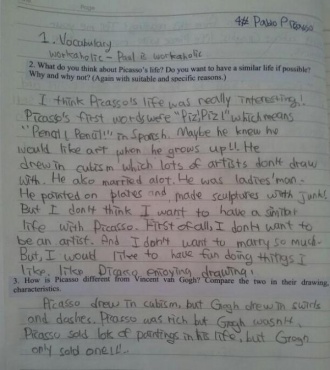 4# Pablo Picasso
1. Vocabulary
workaholic - Paul is workaholic
2. What do you think about Picasso's life? Do you want to have a similar life if possible?
Why and why not? (Again with suitable and specific reasons.)
I think Picasso's life was really interesting!
Picaso's first words were "Piz! Piz!" which means
"Pencil Pencil!" in Spanish. Maybe he knew he
would like art when he grows up!! He
drew in cubism which lots of artists don't draw
with. He also married alot. He was ladies' man.
He painted on plates and made sculptures with junk!
But I don't think I want to have a similar
life with Picasso. First of all, I don't want to
be an artist. And I don't want to marry so much.
But, I would like to have fun doing things I
like, like Picaso enjoying drawing!
3. How is Picasso different from Vincent van Gogh? Compare the two in their drawing
characteristics.
Picasso drew in cubism, but Gogh drew in swirls
and dashes. Picasso was rich but Gogh wasn't.
Picasso sold lots of paintings in his life, but Gogh
only sold one!!!..